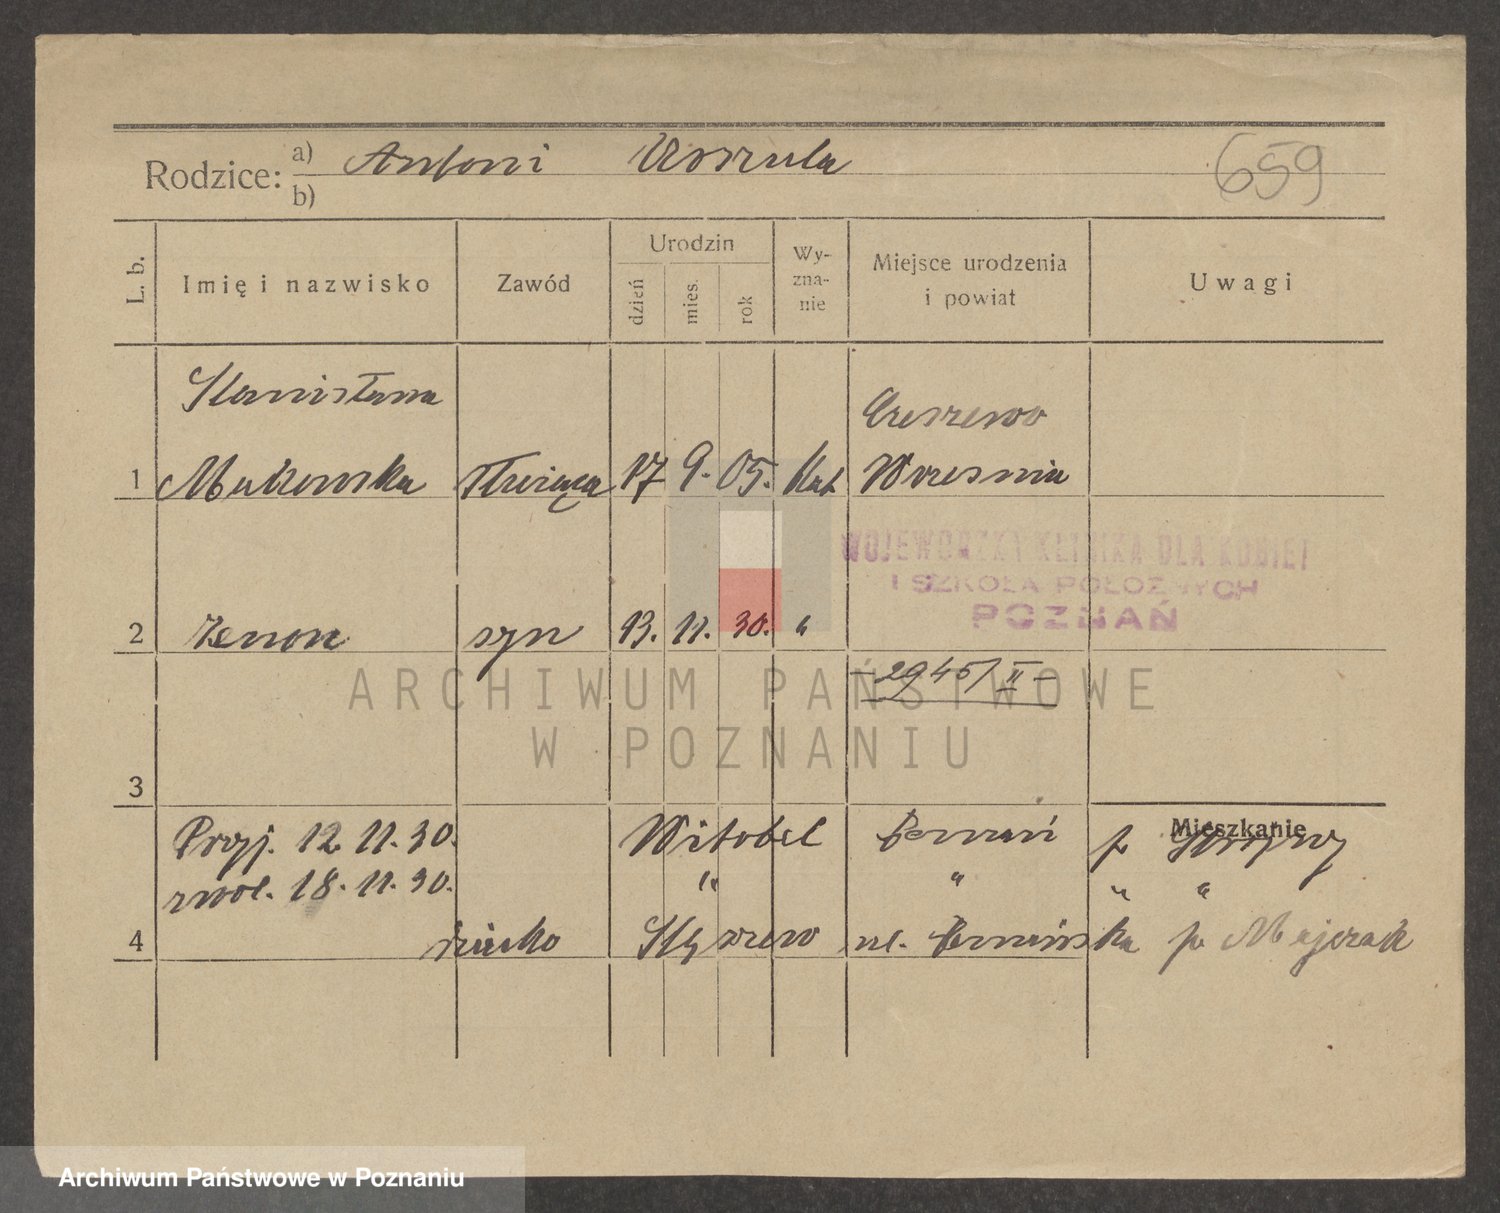 Rodzice: a) Antoni Urszula 659
b)
L. b. Imię i nazwisko Zawód Urodzin dzień mies. rok Wy-zna-nie Miejsce urodzenia i powiat Uwagi
Stanisława Czeszewo
1 Makowska służąca 17 9. 05. Kat Września
WOJEWÓDZKA KLINIKA DLA KOBIET
I SZKOŁA POŁOŻNYCH
POZNAŃ
2 Zenon syn 13. 11. 30. "
- 2945/II -
ARCHIWUM PAŃSTWOWE
W POZNANIU
3
Mieszkanie
Przyj. 12. 11. 30. Witobel Poznań p
zwol. 18. 11. 30. " " " "
4 dziecko ul. Poznańska p Majczak
Archiwum Państwowe w Poznaniu